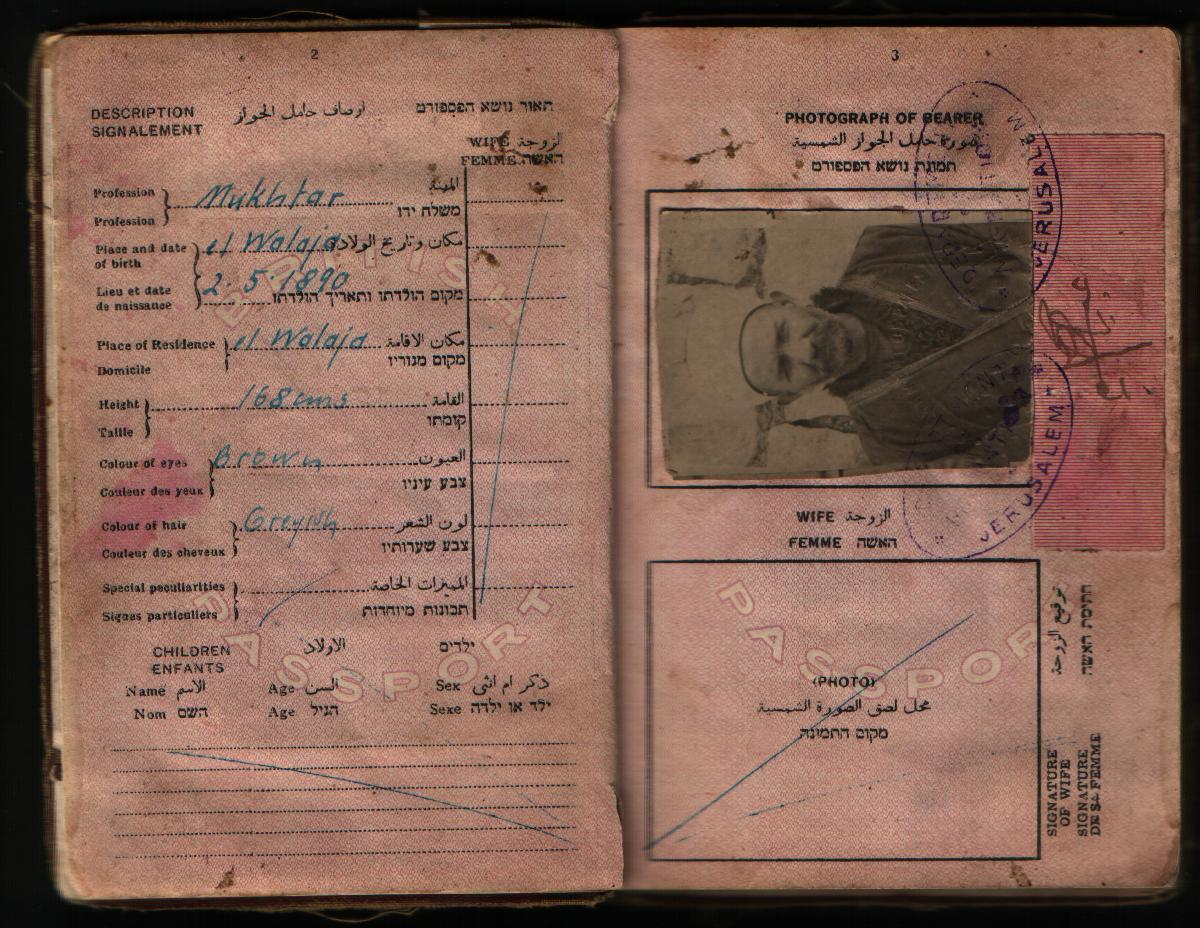 2
DESCRIPTION
SIGNALEMENT
اوصاف حامل الجواز
תאור נושא הפספורט
WIFE لزوجة
FEMME האשה
Profession
Profession
Mukhtar
المهنة
משלח ידו
Place and date
of birth
Lieu et date
de naissance
el Walaja
2.5.1890
مكان وتاريخ الولادة
מקום הולדתו ותאריך הולדתו
Place of Residence
Domicile
el Walaja
مكان الاقامة
מקום מגוריו
Height
Taille
168 cms
القامة
קומתו
Colour of eyes
Couleur des yeux
Brown
العيون
צבע עיניו
Colour of hair
Couleur des cheveux
Greyish
لون الشعر
צבע שערותיו
Special peculiarities
Signes particuliers
المميزات الخاصة
תכונות מיוחדות
CHILDREN الاولاد ילדים
ENFANTS
Name الاسم Age السن Sex ذكر ام انثى
Nom השם Age הגיל Sexe ילד או ילדה
BRITISH
PASSPORT
3
PHOTOGRAPH OF BEARER
صورة حامل الجواز الشمسية
תמונת נושא הפספורט
JERUSALEM
JERUSALEM
WIFE الزوجة
FEMME האשה
PASSPOR
(PHOTO)
محل لصق الصورة الشمسية
מקום התמונה
توقيع الزوجة
חתימת האשה
SIGNATURE
OF WIFE
SIGNATURE
DE SA FEMME